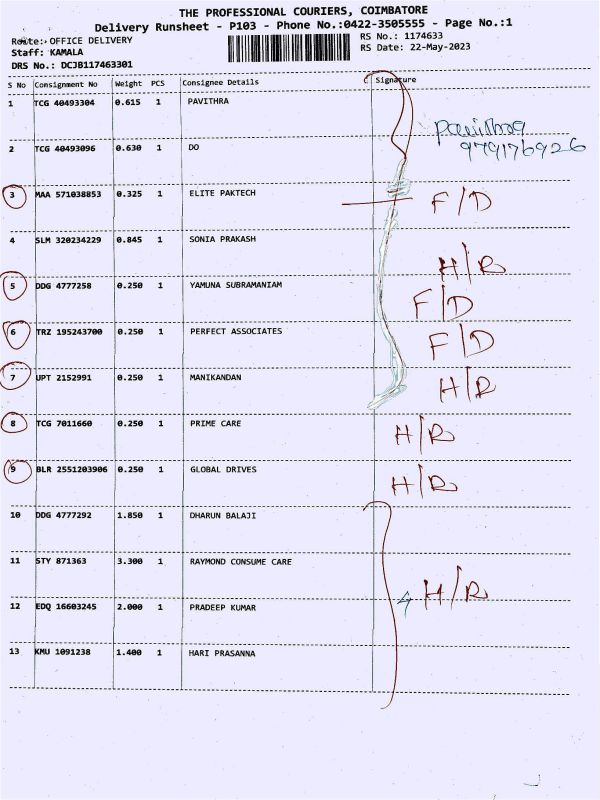 THE PROFESSIONAL COURIERS, COIMBATORE
Delivery Runsheet - P103 - Phone No.:0422-3505555 - Page No.:1
Route: OFFICE DELIVERY RS No.: 1174633
Staff: KAMALA RS Date: 22-May-2023
DRS No.: DCJB117463301
S No Consignment No Weight PCS Consignee Details Signature
1 TCG 40493304 0.615 1 PAVITHRA
Pavithra
979176926
2 TCG 40493096 0.630 1 DO
3 MAA 571038853 0.325 1 ELITE PAKTECH F/D
4 SLM 320234229 0.845 1 SONIA PRAKASH H/R
5 DDG 4777258 0.250 1 YAMUNA SUBRAMANIAM F/D
6 TRZ 195243700 0.250 1 PERFECT ASSOCIATES F/D
7 UPT 2152991 0.250 1 MANIKANDAN H/R
8 TCG 7011660 0.250 1 PRIME CARE H/R
9 BLR 2551203906 0.250 1 GLOBAL DRIVES H/R
10 DDG 4777292 1.850 1 DHARUN BALAJI
11 STY 871363 3.300 1 RAYMOND CONSUME CARE H/R
12 EDQ 16603245 2.000 1 PRADEEP KUMAR
13 KMU 1091238 1.400 1 HARI PRASANNA